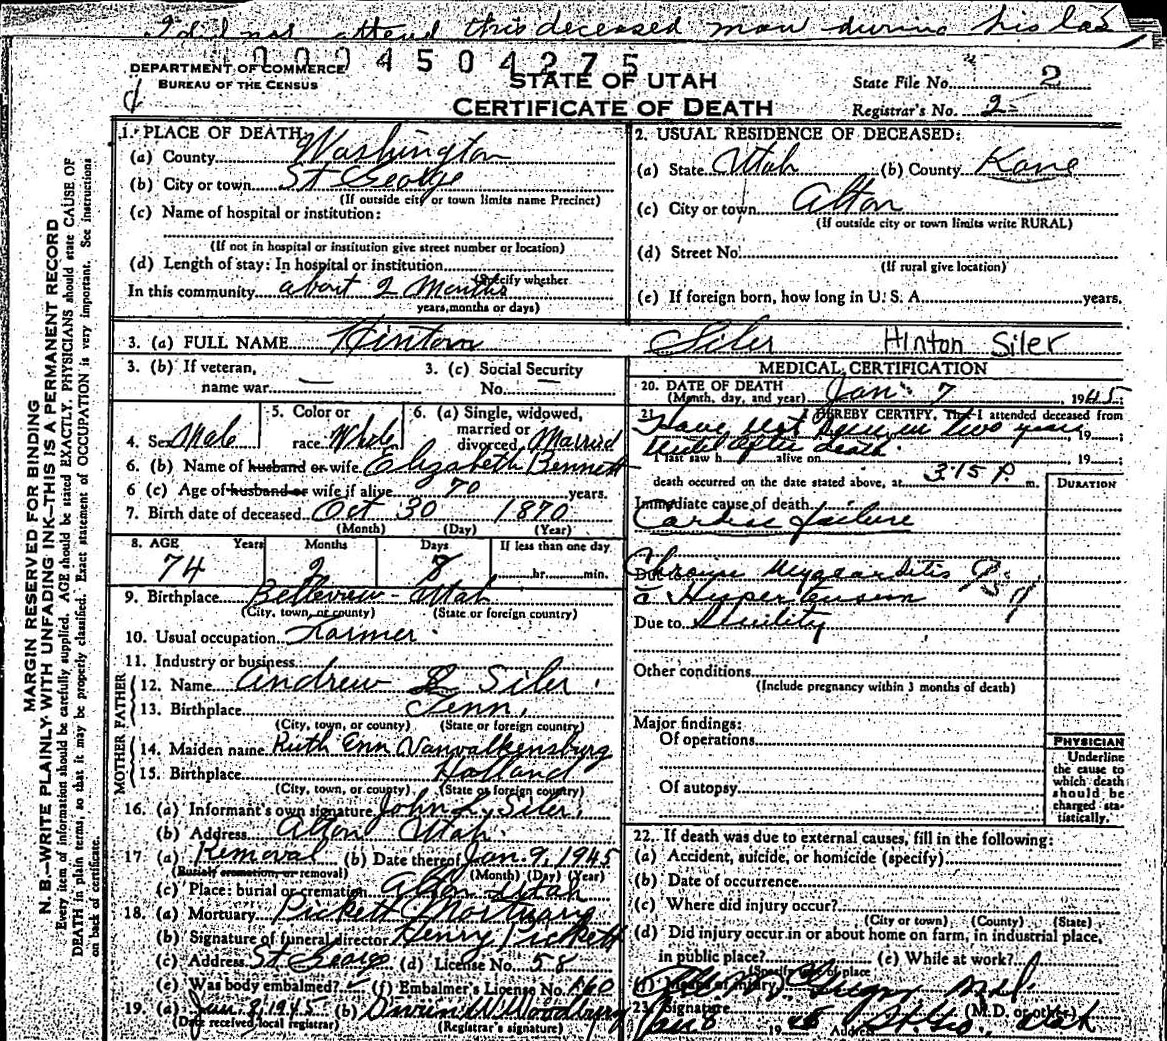 I did not attend this deceased man during his las
0004504275
DEPARTMENT OF COMMERCE
BUREAU OF THE CENSUS
STATE OF UTAH
CERTIFICATE OF DEATH
State File No. 2
Registrar's No. 2
1. PLACE OF DEATH:
(a) County Washington
(b) City or town St George
(If outside city or town limits name Precinct)
(c) Name of hospital or institution:
(If not in hospital or institution give street number or location)
(d) Length of stay: In hospital or institution
(Specify whether
In this community about 2 Months
years, months or days)
2. USUAL RESIDENCE OF DECEASED:
(a) State Utah (b) County Kane
(c) City or town Alton
(If outside city or town limits write RURAL)
(d) Street No.
(If rural give location)
(e) If foreign born, how long in U. S. A. years.
3. (a) FULL NAME Hinton Siler Hinton Siler
3. (b) If veteran, name war —
3. (c) Social Security No. —
4. Sex Male
5. Color or race White
6. (a) Single, widowed, married or divorced Married
6. (b) Name of husband or wife Elizabeth Bennett
6 (c) Age of husband or wife if alive 70 years.
7. Birth date of deceased Oct 30 1870
(Month) (Day) (Year)
8. AGE Years Months Days If less than one day
74 2 8 hr. min.
9. Birthplace Bellevue - Utah
(City, town, or county) (State or foreign country)
10. Usual occupation Farmer
11. Industry or business
FATHER
12. Name Andrew L Siler
13. Birthplace Tenn.
(City, town, or county) (State or foreign country)
MOTHER
14. Maiden name Ruth Enn Vanvalkensburg
15. Birthplace Holland
(City, town, or county) (State or foreign country)
16. (a) Informant's own signature John L. Siler
(b) Address Alton Utah
17. (a) Removal (b) Date thereof Jan. 9, 1945
(Burial, cremation, or removal) (Month) (Day) (Year)
(c) Place: burial or cremation Alton Utah
18. (a) Mortuary Pickett Mortuary
(b) Signature of funeral director Henry Pickett
(c) Address St George (d) License No. 58
(e) Was body embalmed? (f) Embalmer's License No. 160
19. (a) Jan. 8, 1945 (b) Woodbury
(Date received local registrar) (Registrar's signature)
MEDICAL CERTIFICATION
20. DATE OF DEATH Jan. 7 1945
(Month, day, and year)
21. I HEREBY CERTIFY, That I attended deceased from
Have not seen in two years 19
until after death
I last saw h alive on 19
death occurred on the date stated above, at 3:15 P. m.
DURATION
Immediate cause of death
Cardiac failure
Due to Chronic Myocarditis
c̄ Hypertension
Due to Senility
Other conditions
(Include pregnancy within 3 months of death)
Major findings:
Of operations
Of autopsy
PHYSICIAN
Underline the cause to which death should be charged statistically.
22. If death was due to external causes, fill in the following:
(a) Accident, suicide, or homicide (specify)
(b) Date of occurrence
(c) Where did injury occur?
(City or town) (County) (State)
(d) Did injury occur in or about home on farm, in industrial place,
in public place? (e) While at work?
(Specify type of place
(f) Means of injury)
23. Signature M.D.
(M.D. or other)
Jan 8 1945 Address St. Geo, Utah
MARGIN RESERVED FOR BINDING
N. B.—WRITE PLAINLY WITH UNFADING INK—THIS IS A PERMANENT RECORD
Every item of information should be carefully supplied. AGE should be stated EXACTLY. PHYSICIANS should state CAUSE OF
DEATH in plain terms, so that it may be properly classified. Exact statement of OCCUPATION is very important. See instructions
on back of certificate.